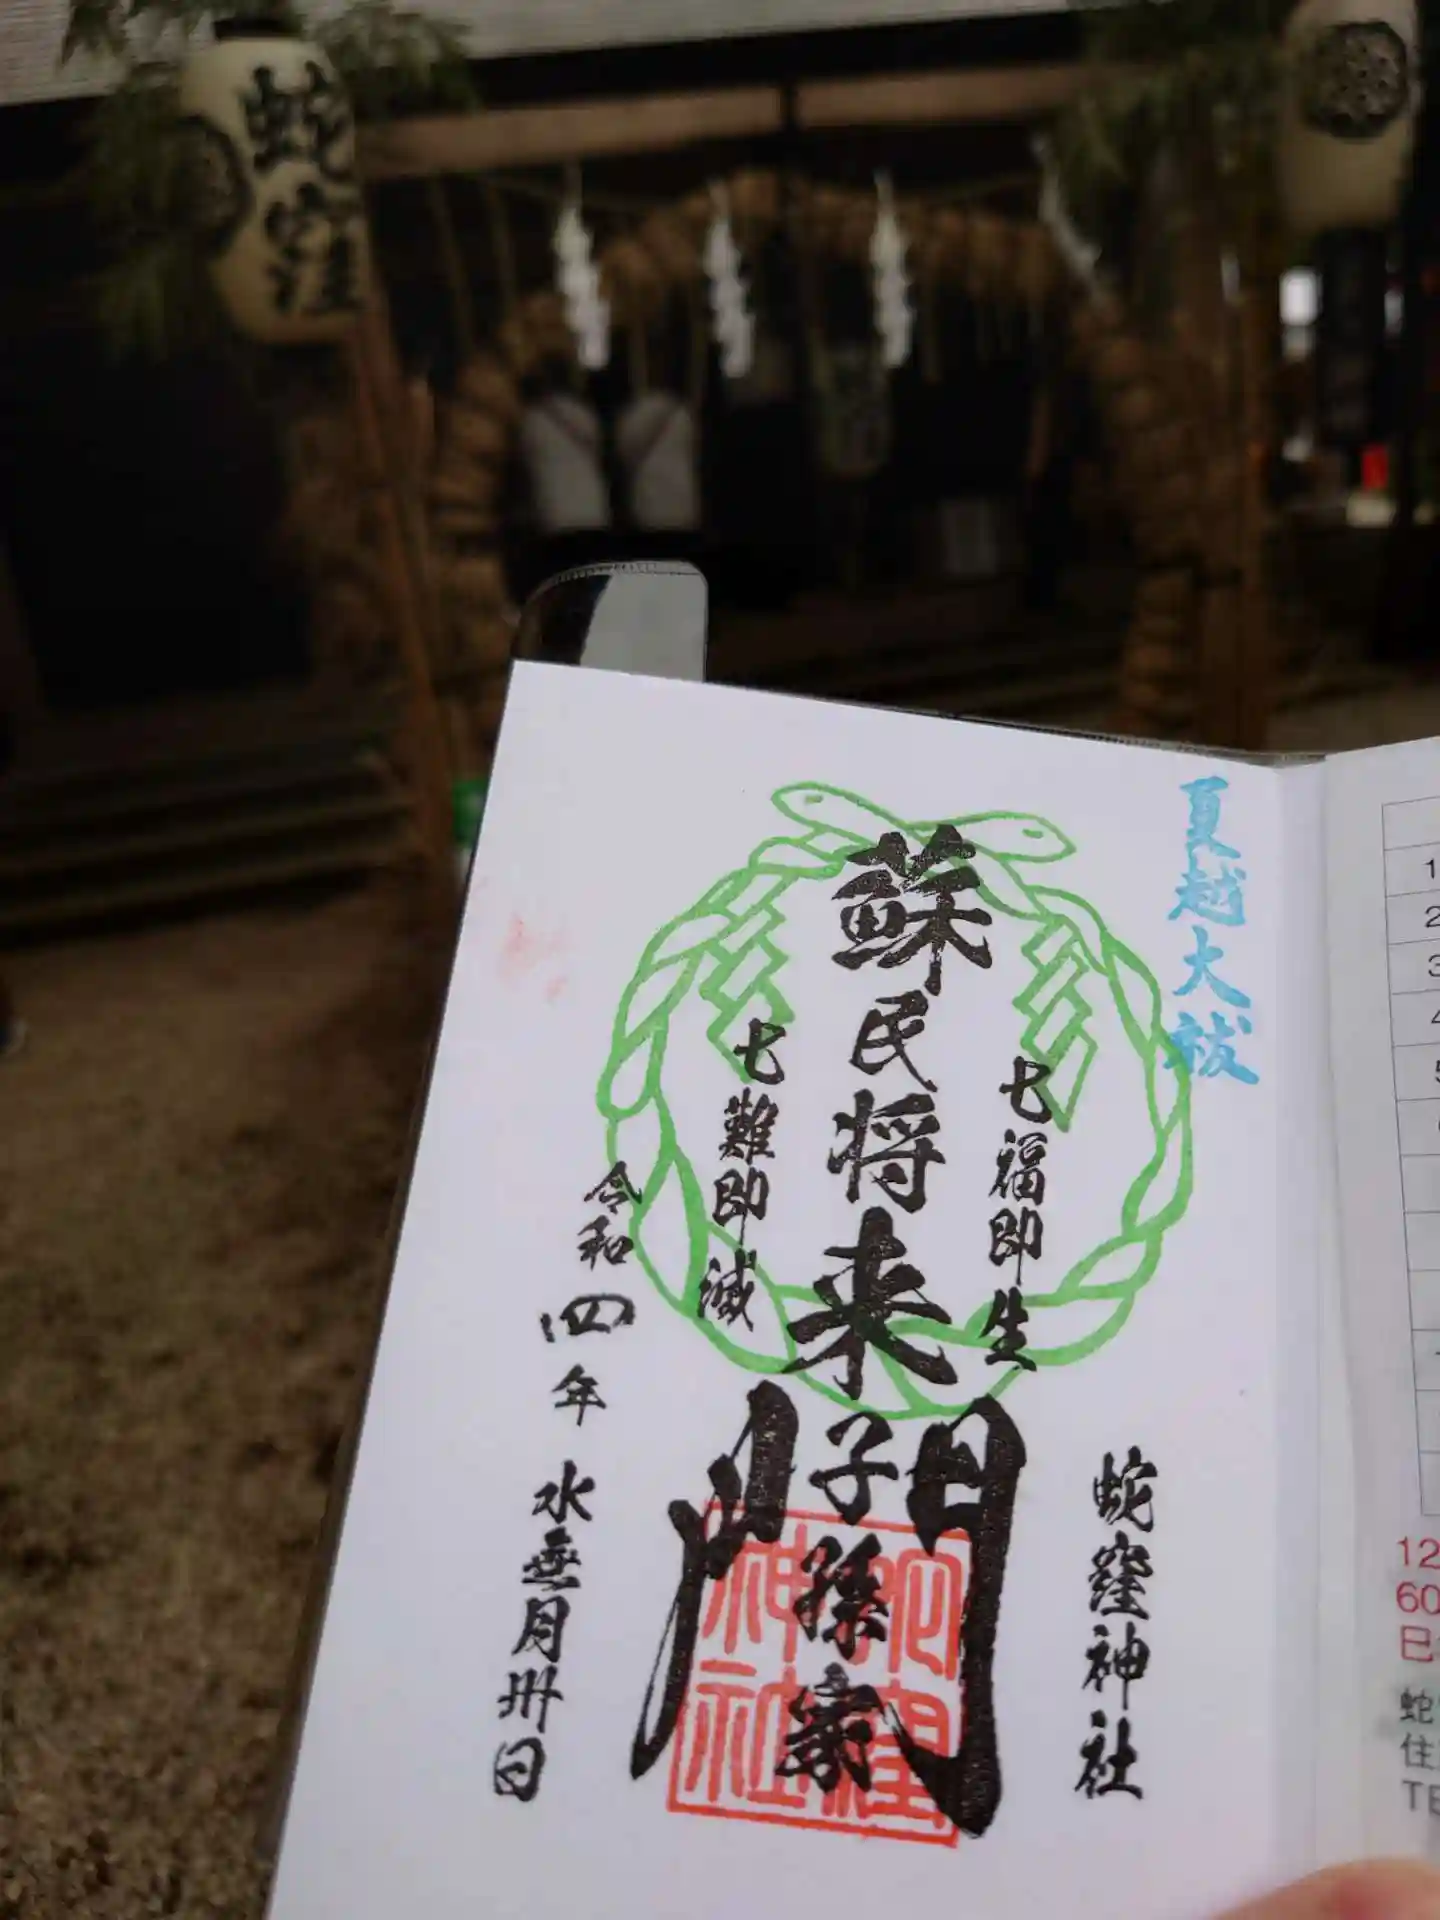 蛇窪
夏越大祓
七福即生
蘇民将来子孫家門
七難即滅
蛇窪神社
令和四年水無月卅日
蛇窪
神社
12
60
巳
蛇
住
TE
1
2
3
4
5